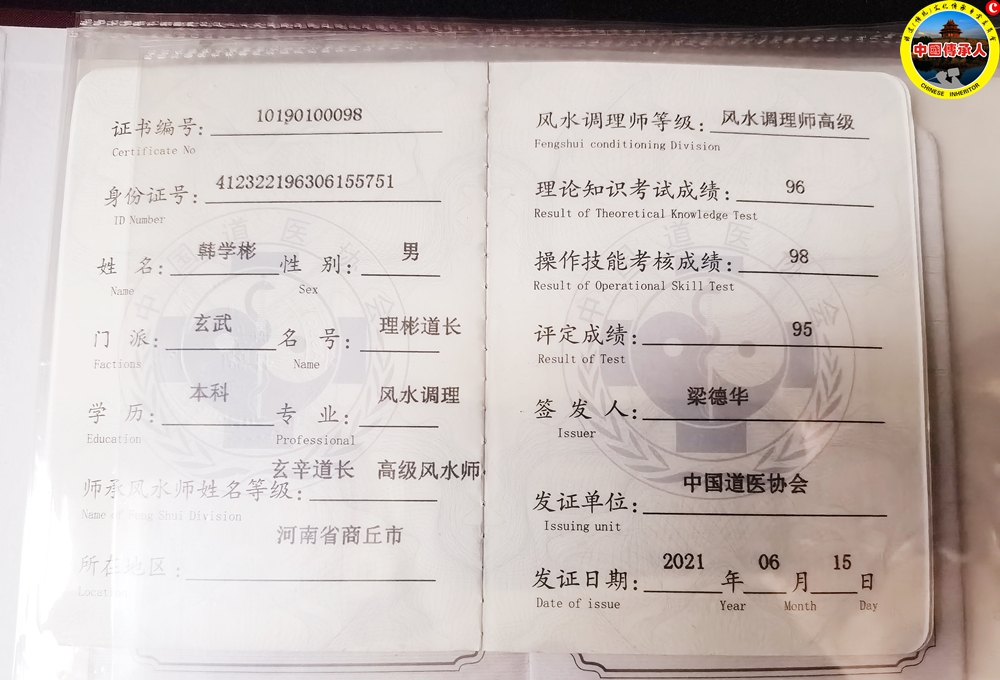 证书编号: 10190100098
Certificate No
身份证号: 412322196306155751
ID Number
姓 名: 韩学彬 性 别: 男
Name Sex
门 派: 玄武 名 号: 理彬道长
Factions Name
学 历: 本科 专 业: 风水调理
Education Professional
师承风水师姓名等级: 玄辛道长 高级风水师
Name of Feng Shui Division
所在地区: 河南省商丘市
Location
风水调理师等级: 风水调理师高级
Fengshui conditioning Division
理论知识考试成绩: 96
Result of Theoretical Knowledge Test
操作技能考核成绩: 98
Result of Operational Skill Test
评定成绩: 95
Result of Test
签 发 人: 梁德华
Issuer
发证单位: 中国道医协会
Issuing unit
发证日期: 2021 年 06 月 15 日
Date of issue Year Month Day
中国道医协会
中国道医协会
中國傳承人
CHINESE INHERITOR
C